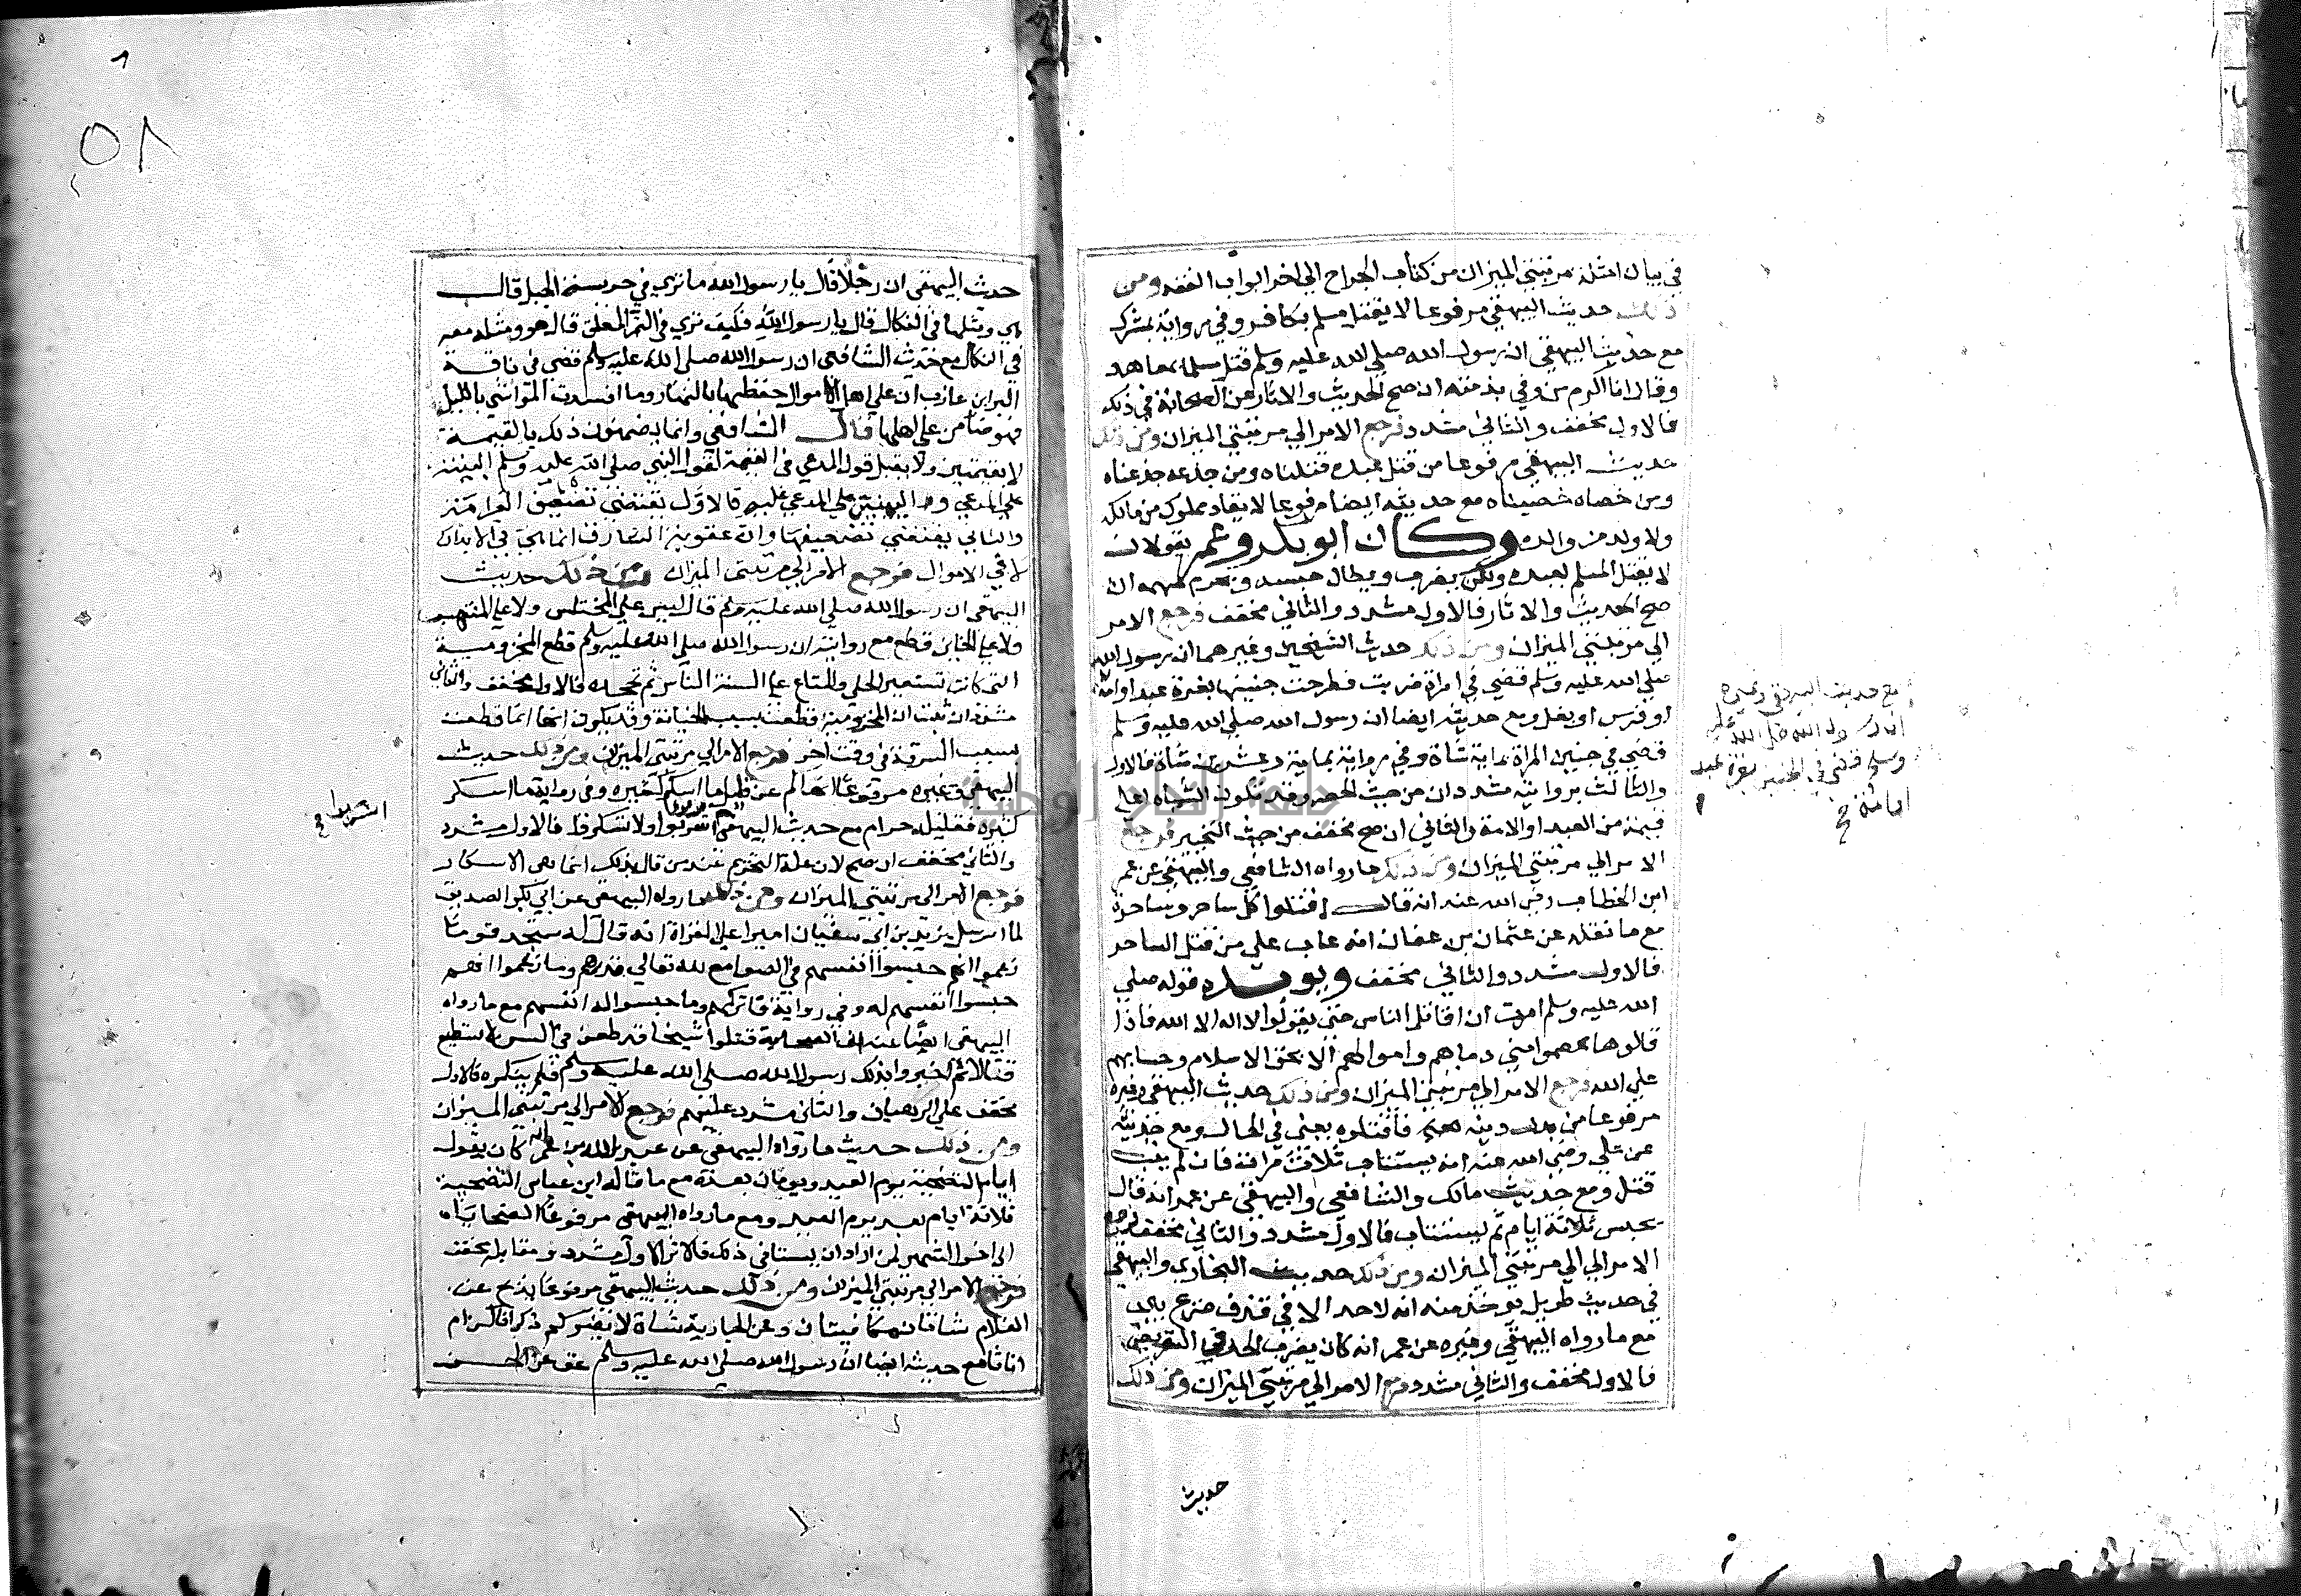 في بيان امثلة مرتبتي الميزان من كتاب الجراح الي اخر ابواب الفقه ومن
ذلك حديث البيهقي مرفوعا لا يقتل مسلم بكافر وفي رواية بمشرك
مع حديث البيهقي ان رسول الله صلي الله عليه وسلم قتل مسلما بمعاهد
وقال انا اكرم من وفي بذمته ان صح الحديث والاثار عن الصحابة في ذلك
فالاول مخفف والثاني مشدد فرجع الامر الي مرتبتي الميزان ومن ذلك
حديث البيهقي مرفوعا من قتل عبده قتلناه ومن جذعه جذعناه
ومن خصاه خصيناه مع حديثه ايضا مرفوعا لا يقاد مملوك من مالكه
ولا ولد من والده وكان ابو بكر وعمر يقولان
لا يقتل المسلم بعبده ولكن يضرب ويطال حبسه ويحرم سهمه ان
صح الحديث والاثار فالاول مشدد والثاني مخفف فرجع الامر
الي مرتبتي الميزان ومن ذلك حديث الشيخين وغيرهما ان رسول الله
صلي الله عليه وسلم قضي في امراة ضربت فطرحت جنينها بغرة عبد او امة
او فرس او بغل ومع حديثه ايضا ان رسول الله صلي الله عليه وسلم
قضي في جنين المراة بماية شاة وفي رواية بماية وعشرين شاة فالاول
والثالث بروايته مشددان من حيث الحصر وقد تكون الشياه اعلي
قيمة من العبد او الامة والثاني ان صح مخفف من حيث التخيير فرجع
الامر الي مرتبتي الميزان ومن ذلك ما رواه الشافعي والبيهقي عن عمر
ابن الخطاب رضي الله عنه انه قال اقتلوا كل ساحر وساحرة
مع ما نقله عن عثمان بن عفان انه عاب علي من قتل الساحر
فالاول مشدد والثاني مخفف ويويده قوله صلي
الله عليه وسلم امرت ان اقاتل الناس حتي يقولوا لا اله الا الله فاذا
قالوها عصموا مني دماهم واموالهم الا بحق الاسلام وحسابهم
علي الله فرجع الامر الي مرتبتي الميزان ومن ذلك حديث البيهقي وغيره
مرفوعا من بدل دينه فاقتلوه يعني في الحال ومع حديثه
عن علي رضي الله عنه انه يستتاب ثلاث مرات فان لم يتب
قتل ومع حديث مالك والشافعي والبيهقي عن عمر انه قال
يحبس ثلاثة ايام ثم يستتاب فالاول مشدد والثاني مخفف فرجع
الامر الي الي مرتبتي الميزان ومن ذلك حديث البخاري والبيهقي
في حديث طويل يوخذ منه انه لا حد الا في قذف صريح بين
مع ما رواه البيهقي وغيره عن عمر انه كان يضرب الحد في التعريض
فالاول مخفف والثاني مشدد فرجع الامر الي مرتبتي الميزان ومن ذلك
حديث
مع حديث البيهقي وغيره
ان رسول الله صلي الله عليه
وسلم قضي في الجنين بغرة عبد
او امة خ
٥٨
حديث البيهقي ان رجلا قال يا رسول الله ما تري في حريسة الجبل قال
هي ومثلها في النكال قال يا رسول الله فكيف تري في الثمر المعلق قال هو ومثله معه
في النكال مع حديث الشافعي ان رسول الله صلي الله عليه وسلم قضي في ناقة
البرا بن عازب ان علي اهل الاموال حفظها بالنهار وما افسدت المواشي بالليل
فهو ضامن علي اهلها قال الشافعي وانما يضمنون ذلك بالقيمة
لا بقيمتين ولا يقبل قول المدعي في القيمة لقول النبي صلي الله عليه وسلم البينة
علي المدعي واليمين علي المدعي عليه فالاول يقتضي تضعيف الغرامة
والثاني يقتضي تضعيفها وان عقوبة السارق انما هي في الابدان
لا في الاموال فرجع الامر الي مرتبتي الميزان ومن ذلك حديث
البيهقي ان رسول الله صلي الله عليه وسلم قال ليس علي المختلس ولا علي المنتهب
ولا علي الخاين قطع مع روايته ان رسول الله صلي الله عليه وسلم قطع المخزومية
التي كانت تستعير الحلي والمتاع علي السنة الناس ثم تجحده فالاول مخفف والثاني
مشدد ان ثبت ان المخزومية قطعت بسبب الخيانة وقد يكون انها انما قطعت
بسبب السرقة في وقت اخر فرجع الامر الي مرتبتي الميزان ومن ذلك حديث
البيهقي وغيره مرفوعا انهاكم عن قليل ما اسكر كثيره وفي رواية ما اسكر
كثيره فقليله حرام مع حديث البيهقي اشربوا ولا تسكروا فالاول مشدد
والثاني مخفف ان صح لان علة التحريم عند من قال بذلك انما هي الاسكار
فرجع الامر الي مرتبتي الميزان ومن ذلك ما رواه البيهقي عن ابي بكر الصديق
لما ارسل يزيد بن ابي سفيان اميرا علي الغزاة انه قال له ستجد قوما
زعموا انهم حبسوا انفسهم في الصوامع لله تعالي فذرهم وما زعموا انهم
حبسوا انفسهم له وفي رواية فاتركهم وما حبسوا له انفسهم مع ما رواه
البيهقي ايضا عنه ان الصحابة قتلوا شيخا قد طعن في السن لا يستطيع
قتالا ثم اخبروا بذلك رسول الله صلي الله عليه وسلم فلم ينكره فالاول
مخفف علي الرهبان والثاني مشدد عليهم فرجع الامر الي مرتبتي الميزان
ومن ذلك حديث ما رواه البيهقي عن عبد الله بن عمر انه كان يقول
ايام التضحية يوم العيد ويومان بعده مع ما قاله ابن عباس التضحية
ثلاثة ايام بعد يوم العيد ومع ما رواه البيهقي مرفوعا الضحايا
الي اخر الشهر لمن اراد ان يستاني ذلك فالاثر الاول مشدد ومقابله مخفف
فرجع الامر الي مرتبتي الميزان ومن ذلك حديث البيهقي مرفوعا يذبح عن
الغلام شاتان مكافيتان وعن الجارية شاة لا يضركم ذكرانا كن ام
اناثا مع حديثه ايضا ان رسول الله صلي الله عليه وسلم عق عن الحسن
اشربوا خ